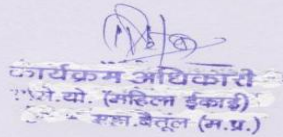 कार्यक्रम अधिकारी
से.यो. (महिला ईकाई)
महा.बैतूल (म.प्र.)